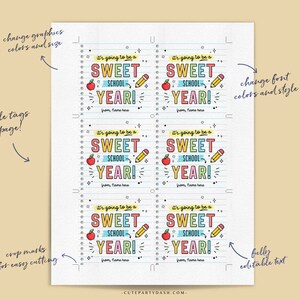 change graphics
colors and size
change font
colors and style
tags
page!
crop marks
easy cutting
fully
editable text
it's going to be a
SWEET
SCHOOL
YEAR!
from, Name here
it's going to be a
SWEET
SCHOOL
YEAR!
from, Name here
it's going to be a
SWEET
SCHOOL
YEAR!
from, Name here
it's going to be a
SWEET
SCHOOL
YEAR!
from, Name here
it's going to be a
SWEET
SCHOOL
YEAR!
from, Name here
it's going to be a
SWEET
SCHOOL
YEAR!
from, Name here
CUTEPARTYDASH.COM